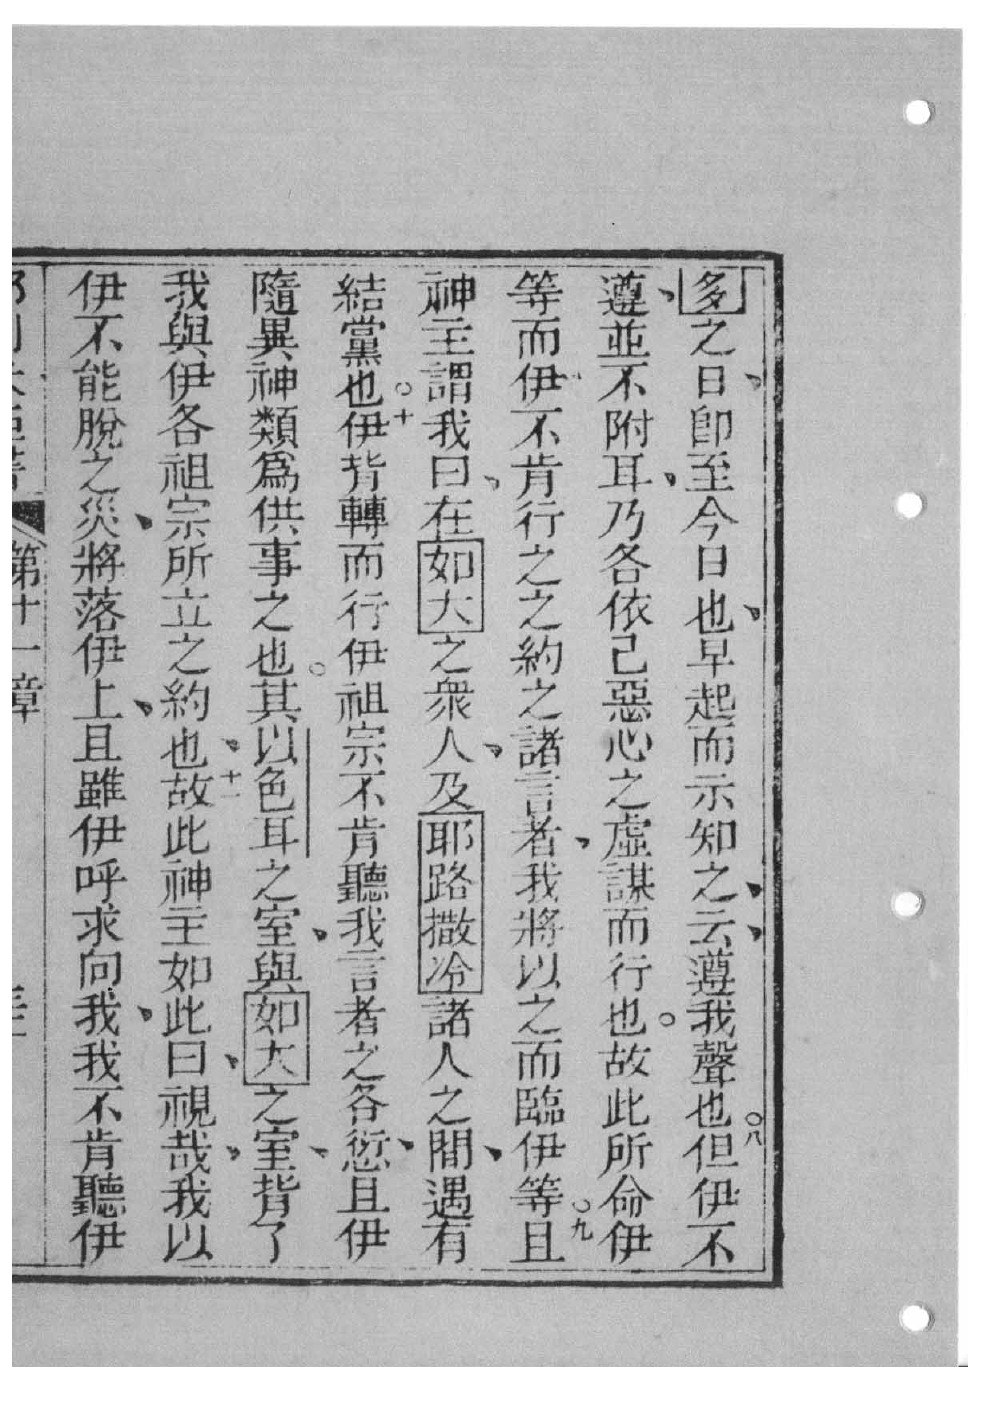 多之日、卽至今日也、早起而示知之、云、遵我聲也○八但伊不
遵、並不附耳、乃各依己惡心之虛謀而行也。故此所命伊
等而伊不肯行之之約之諸言者、我將以之而臨伊等○九且
神主謂我曰、在如大之衆人、及耶路撒冷諸人之間、遇有
結黨也○十伊背轉而行伊祖宗不肯聽我言者之各愆、且伊
隨異神類爲供事之也。其以色耳之室、與如大之室、背了
我與伊各祖宗所立之約也、十一故此神主如此曰、視哉、我以
伊不能脫之災、將落伊上、且雖伊呼求向我、我不肯聽伊
第十一章